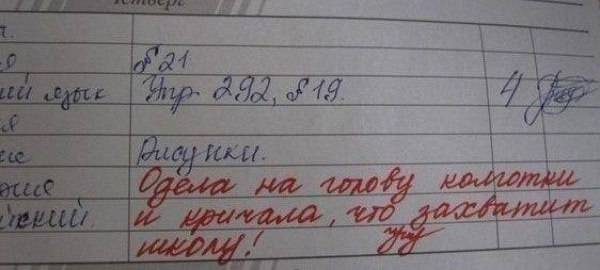 Четверг
§ 21
ий язык Упр 292, §19. 4
Рисунки.
Одела на голову колготки
йский и кричала, что захватит
школу!